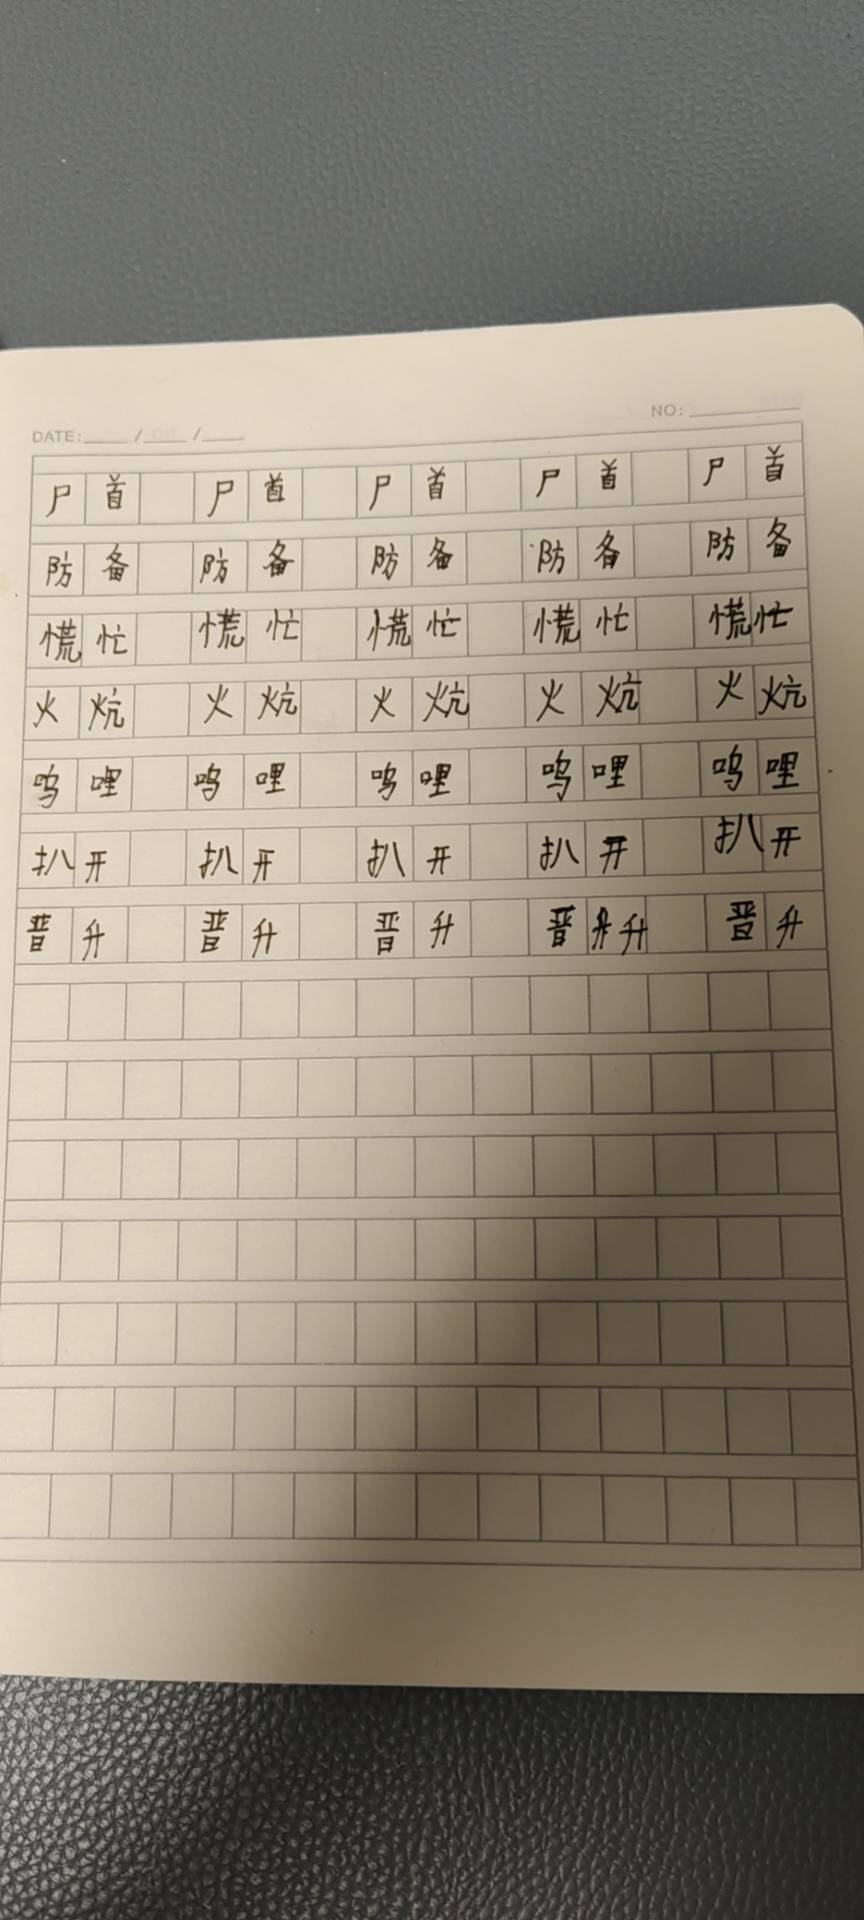 DATE: / / NO:
尸首 尸首 尸首 尸首 尸首
防备 防备 防备 防备 防备
慌忙 慌忙 慌忙 慌忙 慌忙
火炕 火炕 火炕 火炕 火炕
呜哩 呜哩 呜哩 呜哩 呜哩
扒开 扒开 扒开 扒开 扒开
晋升 晋升 晋升 晋升 晋升